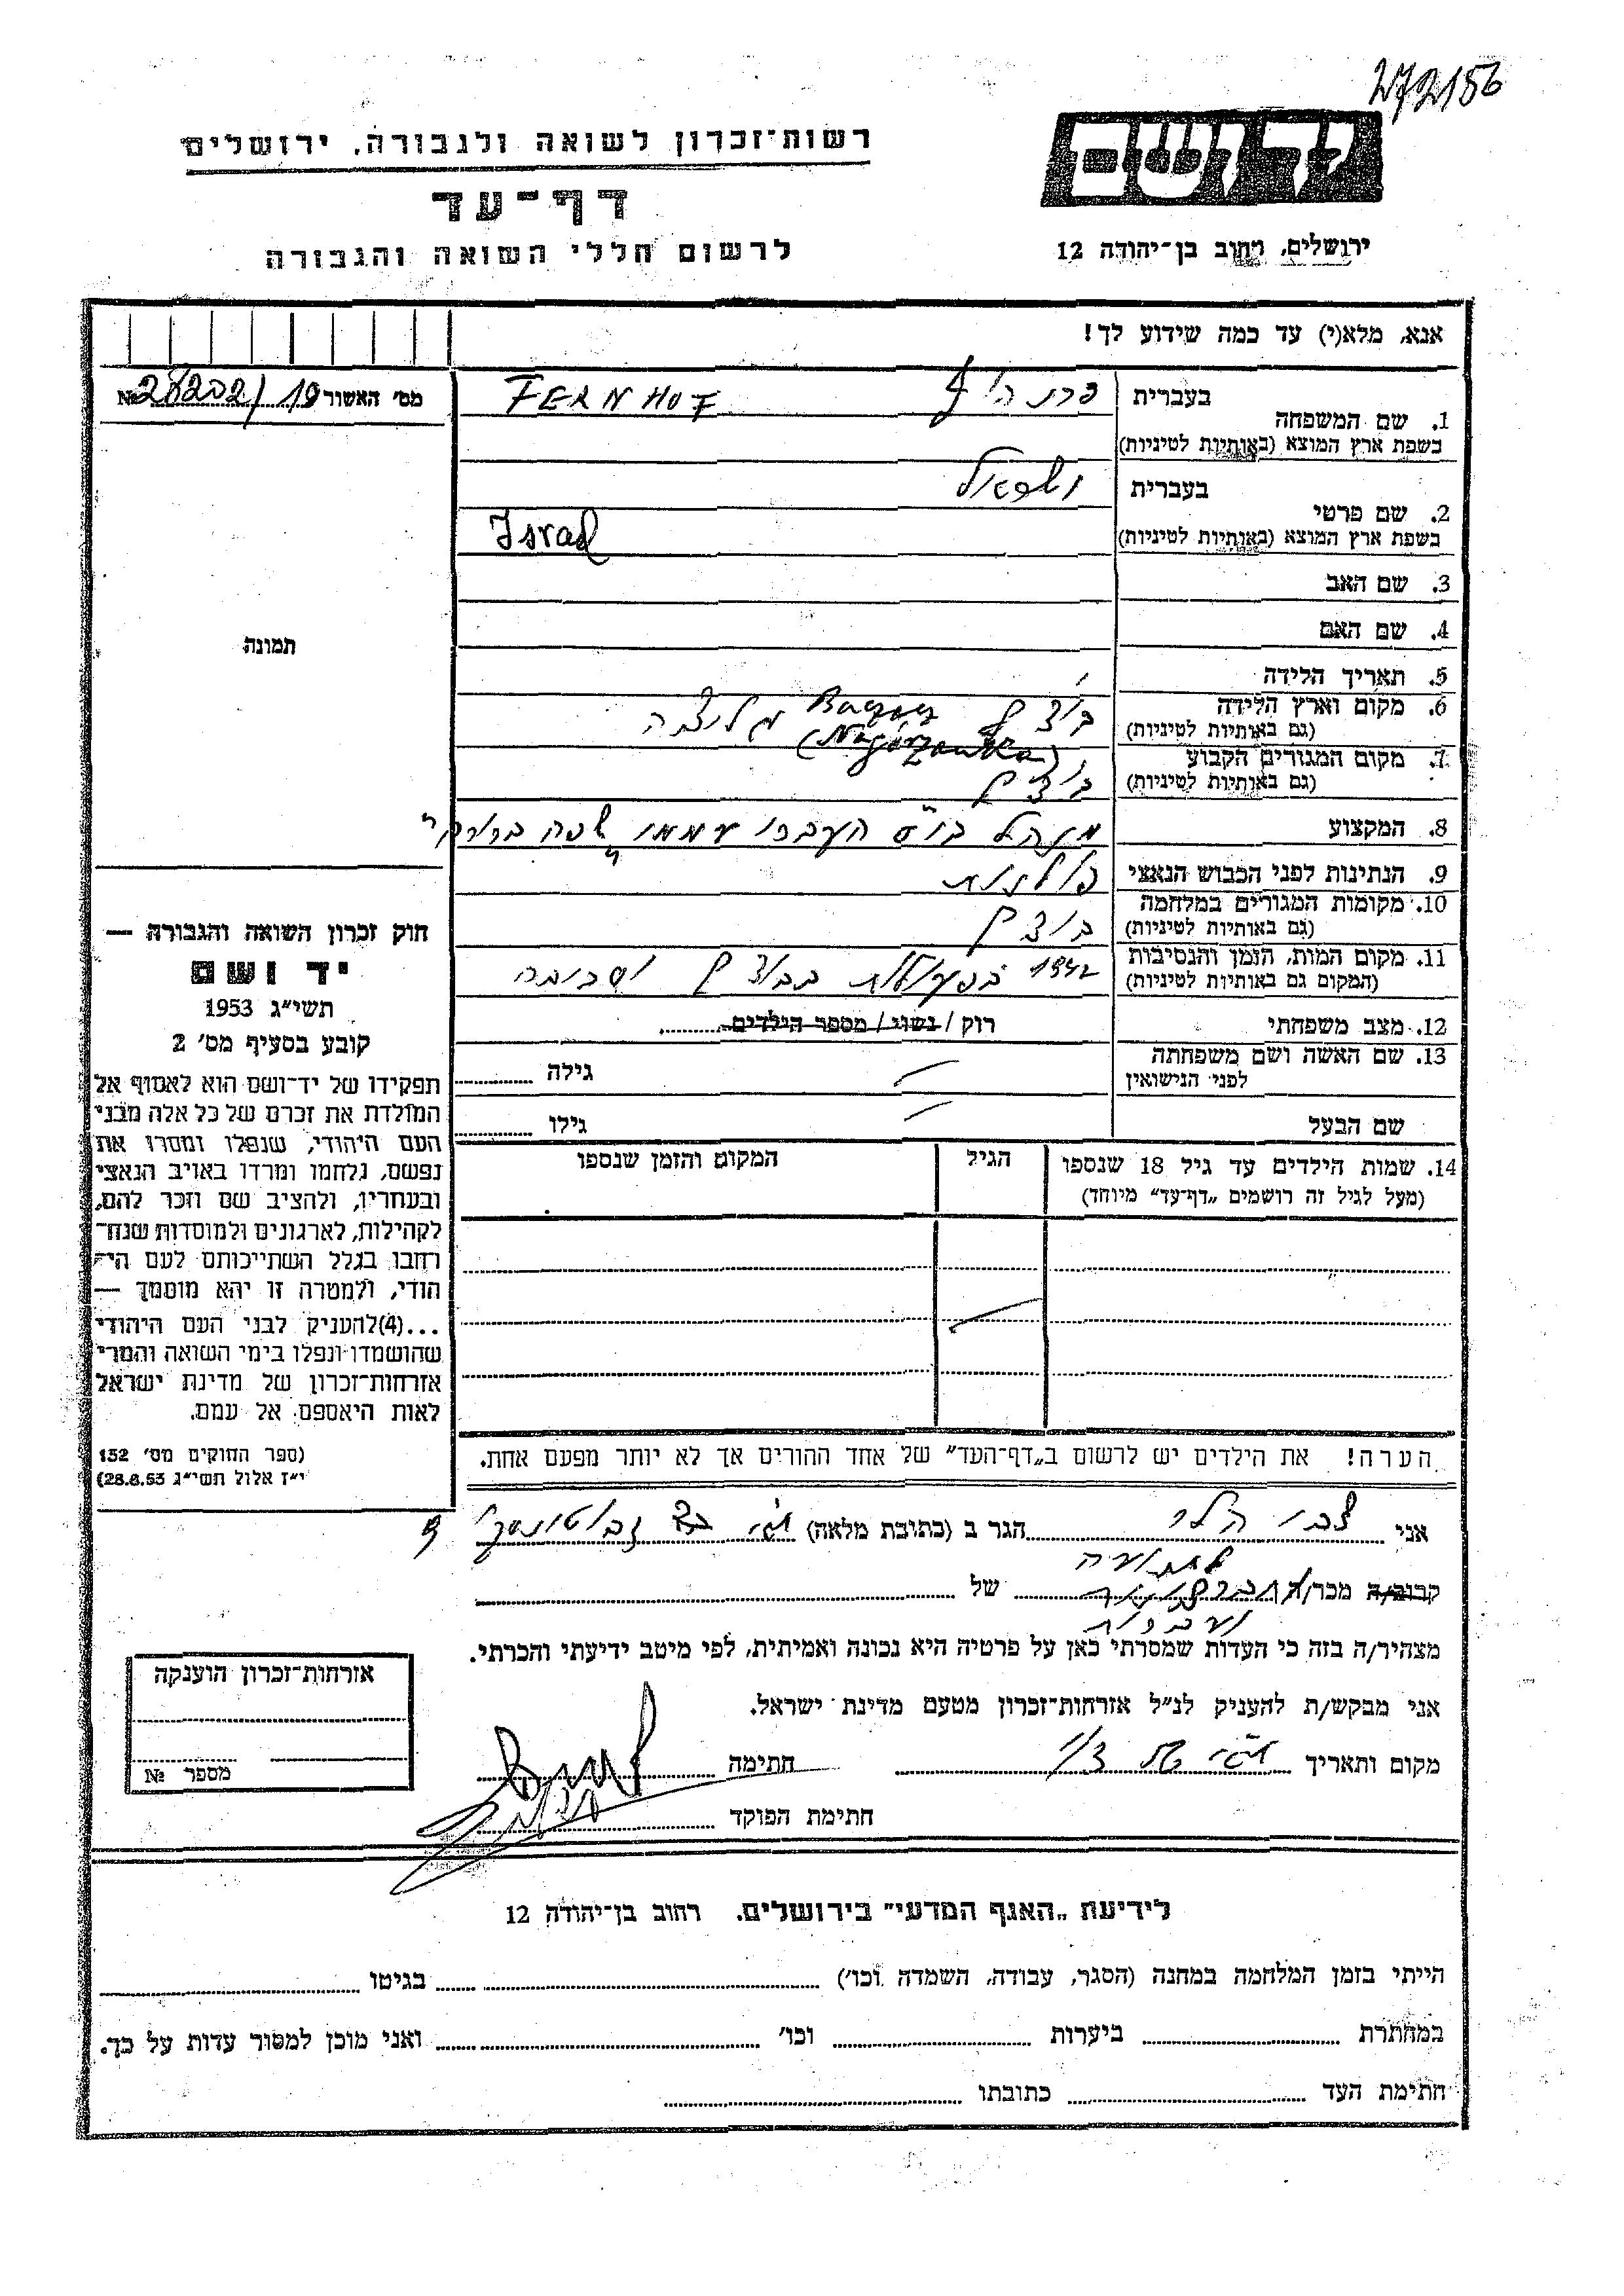 272156
רשות־זכרון לשואה ולגבורה, ירושלים
ידושם
דף־עד
לרשום חללי השואה והגבורה
ירושלים, רחוב בן־יהודה 12
אנא, מלא(י) עד כמה שידוע לך!
מס׳ האשור № 28202/19
1. שם המשפחה
בעברית פרנהוף FERNHOF
בשפת ארץ המוצא (באותיות לטיניות)
2. שם פרטי
בעברית ישראל
בשפת ארץ המוצא (באותיות לטיניות) Israel
3. שם האב
4. שם האם
5. תאריך הלידה
6. מקום וארץ הלידה בוצ׳ץ גליציה
(גם באותיות לטיניות) (Nagórzanka)
7. מקום המגורים הקבוע בוצ׳ץ
(גם באותיות לטיניות)
8. המקצוע מנהל בי״ס העברי עממי "שפה ברורה"
9. הנתינות לפני הכבוש הנאצי פולנית
10. מקומות המגורים במלחמה בוצ׳ץ
(גם באותיות לטיניות)
11. מקום המות, הזמן והנסיבות 1942 בפעולות בבוצ׳ץ וסביבה
(המקום גם באותיות לטיניות)
12. מצב משפחתי רוק / נשוי / מספר הילדים
13. שם האשה ושם משפחתה לפני הנישואין גילה
שם הבעל גילו
14. שמות הילדים עד גיל 18 שנספו הגיל המקום והזמן שנספו
(מעל לגיל זה רושמים „דף־עד” מיוחד)
הערה! את הילדים יש לרשום ב„דף־העד” של אחד ההורים אך לא יותר מפעם אחת.
תמונה
חוק זכרון השואה והגבורה —
יד ושם
תשי״ג 1953
קובע בסעיף מס׳ 2
תפקידו של יד־ושם הוא לאסוף אל
המולדת את זכרם של כל אלה מבני
העם היהודי, שנפלו ומסרו את
נפשם, נלחמו ומרדו באויב הנאצי
ובעוזריו, ולהציב שם וזכר להם,
לקהילות, לארגונים ולמוסדות שנח־
רבו בגלל השתייכותם לעם הי־
הודי, ולמטרה זו יהא מוסמך —
...(4) להעניק לבני העם היהודי
שהושמדו ונפלו בימי השואה והמרי
אזרחות־זכרון של מדינת ישראל
לאות היאספם אל עמם.
(ספר החוקים מס׳ 132
י״ז אלול תשי״ג 28.8.53)
אני צבי הלר הגר ב (כתובת מלאה) ז׳בוטינסקי
קרוב/ה מכר/ה של
מצהיר/ה בזה כי העדות שמסרתי כאן על פרטיה היא נכונה ואמיתית, לפי מיטב ידיעתי והכרתי.
אני מבקש/ת להעניק לנ״ל אזרחות־זכרון מטעם מדינת ישראל.
מקום ותאריך חתימה
חתימת הפוקד
אזרחות־זכרון הוענקה
מספר №
לידיעת „האגף המדעי” בירושלים, רחוב בן־יהודה 12
הייתי בזמן המלחמה במחנה (הסגר, עבודה, השמדה וכו׳) בגיטו
במחתרת ביערות וכו׳ ואני מוכן למסור עדות על כך.
חתימת העד כתובתו